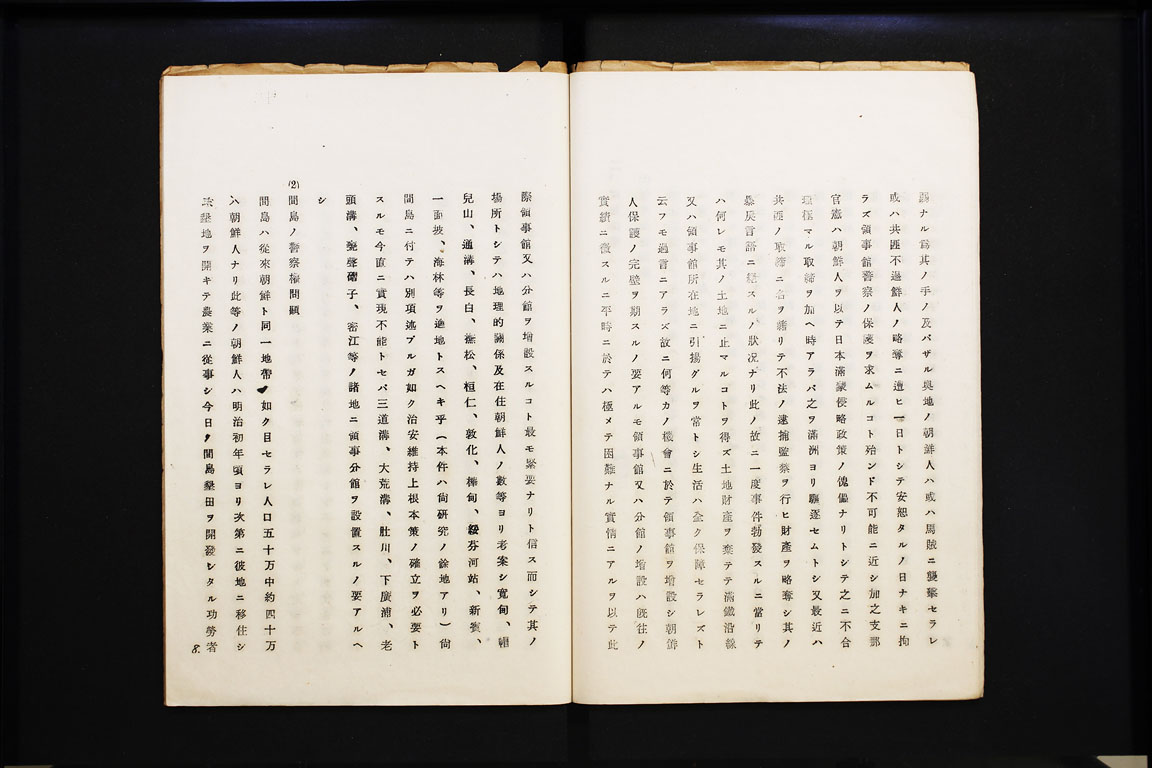 弱ナル爲其ノ手ノ及バザル奥地ノ朝鮮人ハ或ハ馬賊ニ襲擊セラレ
或ハ共匪不逞鮮人ノ略奪ニ遭ヒ一日トシテ安恕タルノ日ナキニ拘
ラズ領事館警察ノ保護ヲ求ムルコト殆ンド不可能ニ近シ加之支那
官憲ハ朝鮮人ヲ以テ日本滿蒙侵略政策ノ傀儡ナリトシテ之ニ不合
理極マル取締ヲ加ヘ時アラバ之ヲ滿洲ヨリ驅逐セムトシ又最近ハ
共匪ノ取締ニ名ヲ藉リテ不法ノ逮捕監禁ヲ行ヒ財產ヲ略奪シ其ノ
暴戾言語ニ絕スルノ狀況ナリ此ノ故ニ一度事件勃發スルニ當リテ
ハ何レモ其ノ土地ニ止マルコトヲ得ズ土地財產ヲ棄テテ滿鐵沿線
又ハ領事館所在地ニ引揚グルヲ常トシ生活ハ全ク保障セラレズト
云フモ過言ニアラズ故ニ何等カノ機會ニ於テ領事館ヲ增設シ朝鮮
人保護ノ完壁ヲ期スルノ要アルモ領事館又ハ分館ノ增設ハ既往ノ
實績ニ徵スルニ平時ニ於テハ極メテ困難ナル實情ニアルヲ以テ此
際領事館又ハ分館ヲ增設スルコト最モ緊要ナリト信ス而シテ其ノ
場所トシテハ地理的關係及在住朝鮮人ノ數等ヨリ考案シ寬甸、帽
兒山、通溝、長白、撫松、桓仁、敦化、樺甸、綏芬河站、新賓、
一面坡、海林等ヲ適地トスヘキ乎(本件ハ尙硏究ノ餘地アリ)尙
間島ニ付テハ別項述ブルガ如ク治安維持上根本策ノ確立ヲ必要ト
スルモ今直ニ實現不能トセバ三道溝、大荒溝、肚川、下廣浦、老
頭溝、甕聲磖子、密江等ノ諸地ニ領事分館ヲ設置スルノ要アルヘ
シ
(2)間島ノ警察權問題
間島ハ從來朝鮮ト同一地帶ノ如ク目セラレ人口五十万中約四十万
ハ朝鮮人ナリ此等ノ朝鮮人ハ明治初年頃ヨリ次第ニ彼地ニ移住シ
墾地ヲ開キテ農業ニ從事シ今日ノ間島墾田ヲ開發シタル功勞者
8.